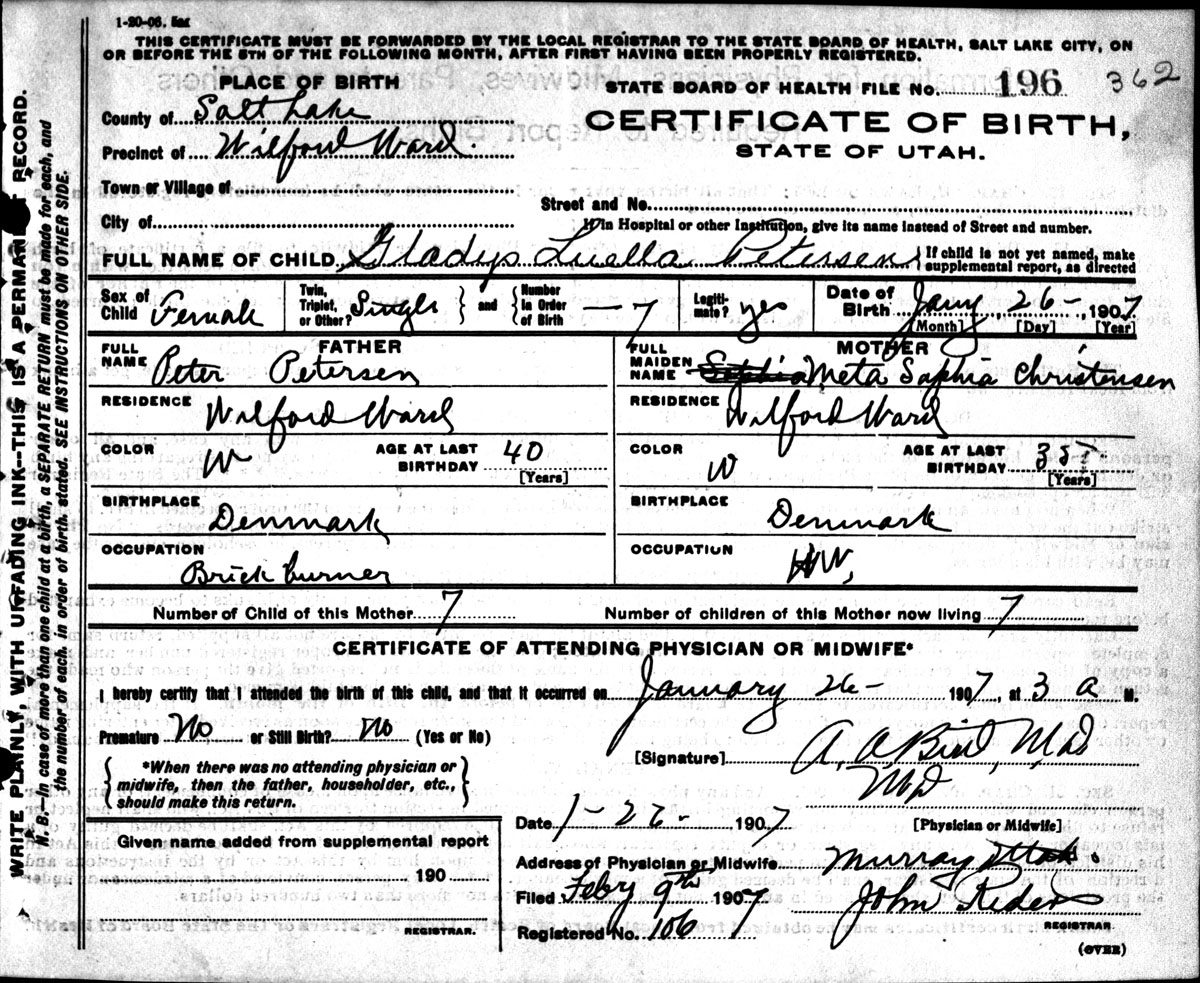 1-20-06. 5m
THIS CERTIFICATE MUST BE FORWARDED BY THE LOCAL REGISTRAR TO THE STATE BOARD OF HEALTH, SALT LAKE CITY, ON
OR BEFORE THE 5TH OF THE FOLLOWING MONTH, AFTER FIRST HAVING BEEN PROPERLY REGISTERED.
PLACE OF BIRTH
STATE BOARD OF HEALTH FILE No. 196 362
County of Salt Lake
CERTIFICATE OF BIRTH,
Precinct of Wilford Ward.
STATE OF UTAH.
Town or Village of
Street and No.
City of
If in Hospital or other Institution, give its name instead of Street and number.
FULL NAME OF CHILD Gladys Luella Petersen { If child is not yet named, make
supplemental report, as directed
Sex of Child Female Twin, Triplet, or Other? Single } and { Number in Order of Birth 7 Legiti-mate? yes Date of Birth Jany 26- , 1907
[Month] [Day] [Year]
FATHER
FULL NAME Peter Petersen
RESIDENCE Wilford Ward
COLOR W AGE AT LAST BIRTHDAY 40 [Years]
BIRTHPLACE Denmark
OCCUPATION Brick burner
MOTHER
FULL MAIDEN NAME Meta Sophia Christensen
RESIDENCE Wilford Ward
COLOR W AGE AT LAST BIRTHDAY [Years]
BIRTHPLACE Denmark
OCCUPATION HW,
Number of Child of this Mother 7 Number of children of this Mother now living 7
CERTIFICATE OF ATTENDING PHYSICIAN OR MIDWIFE*
I hereby certify that I attended the birth of this child, and that it occurred on January 26- 1907, at 3 a M.
Premature No or Still Birth? No (Yes or No)
[Signature] M.D.
MD
*When there was no attending physician or
midwife, then the father, householder, etc.,
should make this return.
Date 1-26- 1907 [Physician or Midwife]
Given name added from supplemental report
190
REGISTRAR.
Address of Physician or Midwife Murray Utah.
Filed Feby 9th 1907 John Rider
REGISTRAR
Registered No. 106
(OVER)
WRITE PLAINLY, WITH UNFADING INK—THIS IS A PERMANENT RECORD.
N. B.—In case of more than one child at a birth, a SEPARATE RETURN must be made for each, and
the number of each, in order of birth, stated. SEE INSTRUCTIONS ON OTHER SIDE.